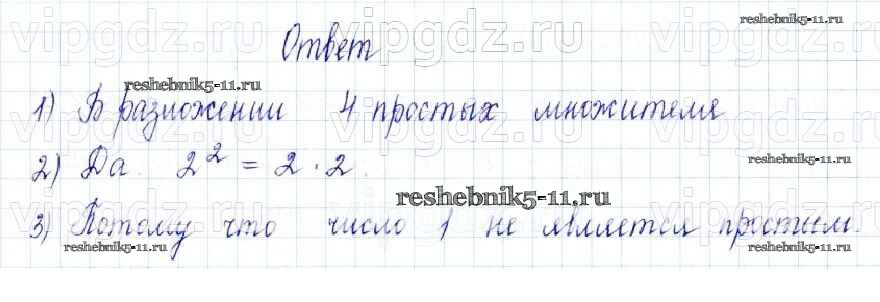 vipgdz.ru vipgdz.ru vipgdz.ru vipgdz.ru
reshebnik5-11.ru
Ответ
reshebnik5-11.ru
1) В разложении 4 простых множителя
vipgdz.ru vipgdz.ru vipgdz.ru vipgdz.ru
2) Да. 2² = 2 · 2.
reshebnik5-11.ru
reshebnik5-11.ru
3) Потому что число 1 не является простым.
vipgdz.ru vipgdz.ru vipgdz.ru vipgdz.ru
reshebnik5-11.ru
reshebnik5-11.ru